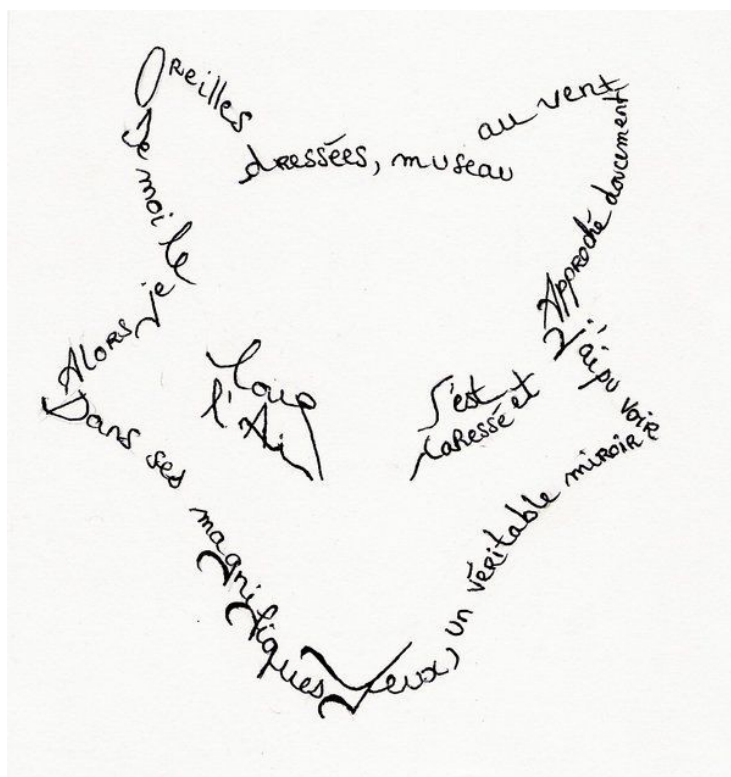 Oreilles dressées, museau au vent
De moi le loup s'est Approché doucement
Alors je l'Ai caressé et j'ai pu voir
Dans ses magnifiques Yeux, un véritable miroir